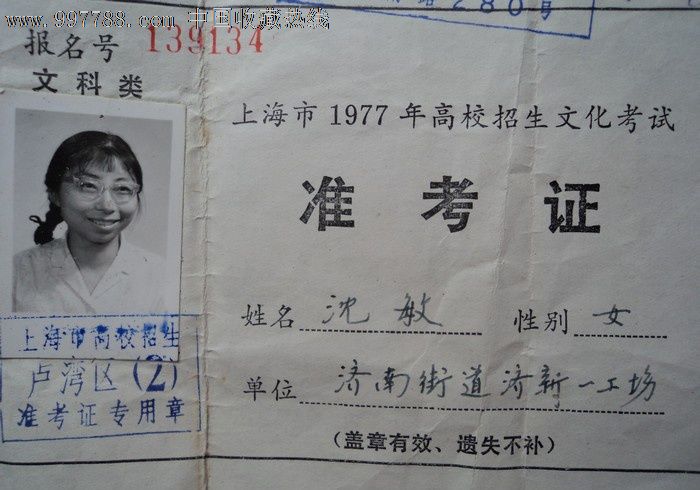 www.997788.com 中国收藏热线
280号
报名号 139134
文科类
上海市1977年高校招生文化考试
准考证
姓名 沈敏 性别 女
单位 济南街道济新一工场
(盖章有效、遗失不补)
上海市高校招生
卢湾区(2)
准考证专用章